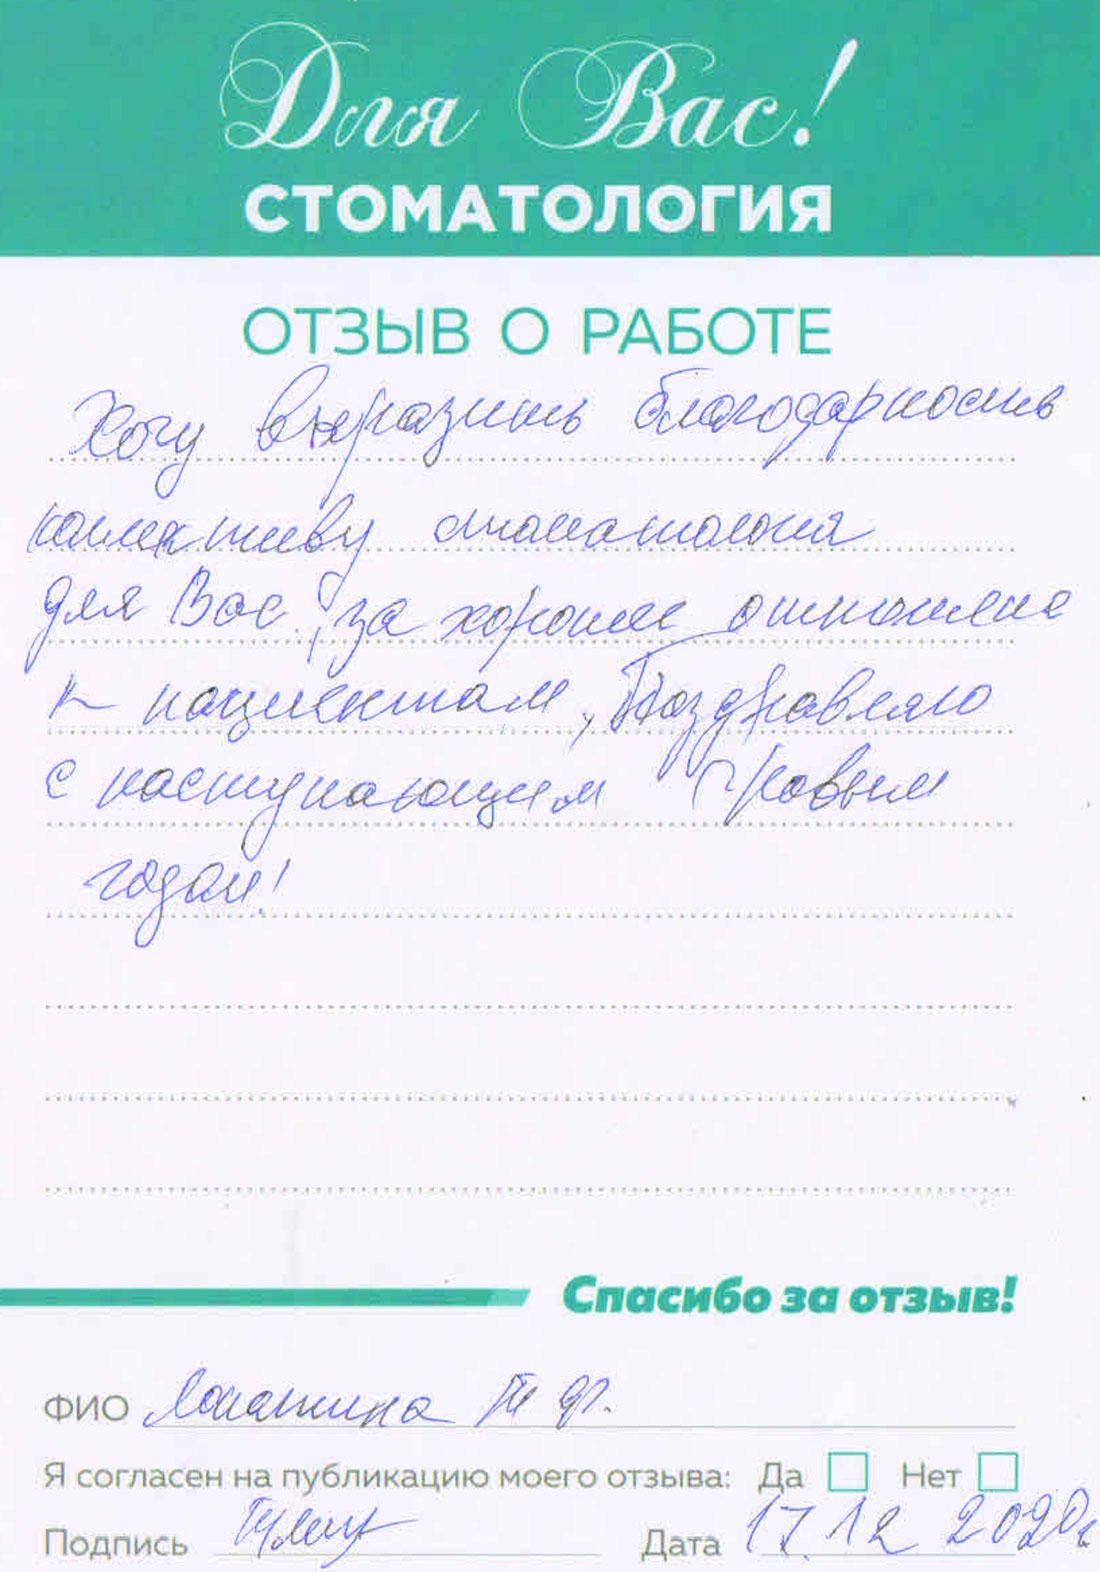 Для Вас!
СТОМАТОЛОГИЯ
ОТЗЫВ О РАБОТЕ
Хочу выразить благодарность
коллективу стоматология
для Вас, за хорошее отношение
к пациентам, Поздравляю
с наступающим Новым
годом!
Спасибо за отзыв!
ФИО
Я согласен на публикацию моего отзыва: Да Нет
Подпись Дата 17.12 2020г